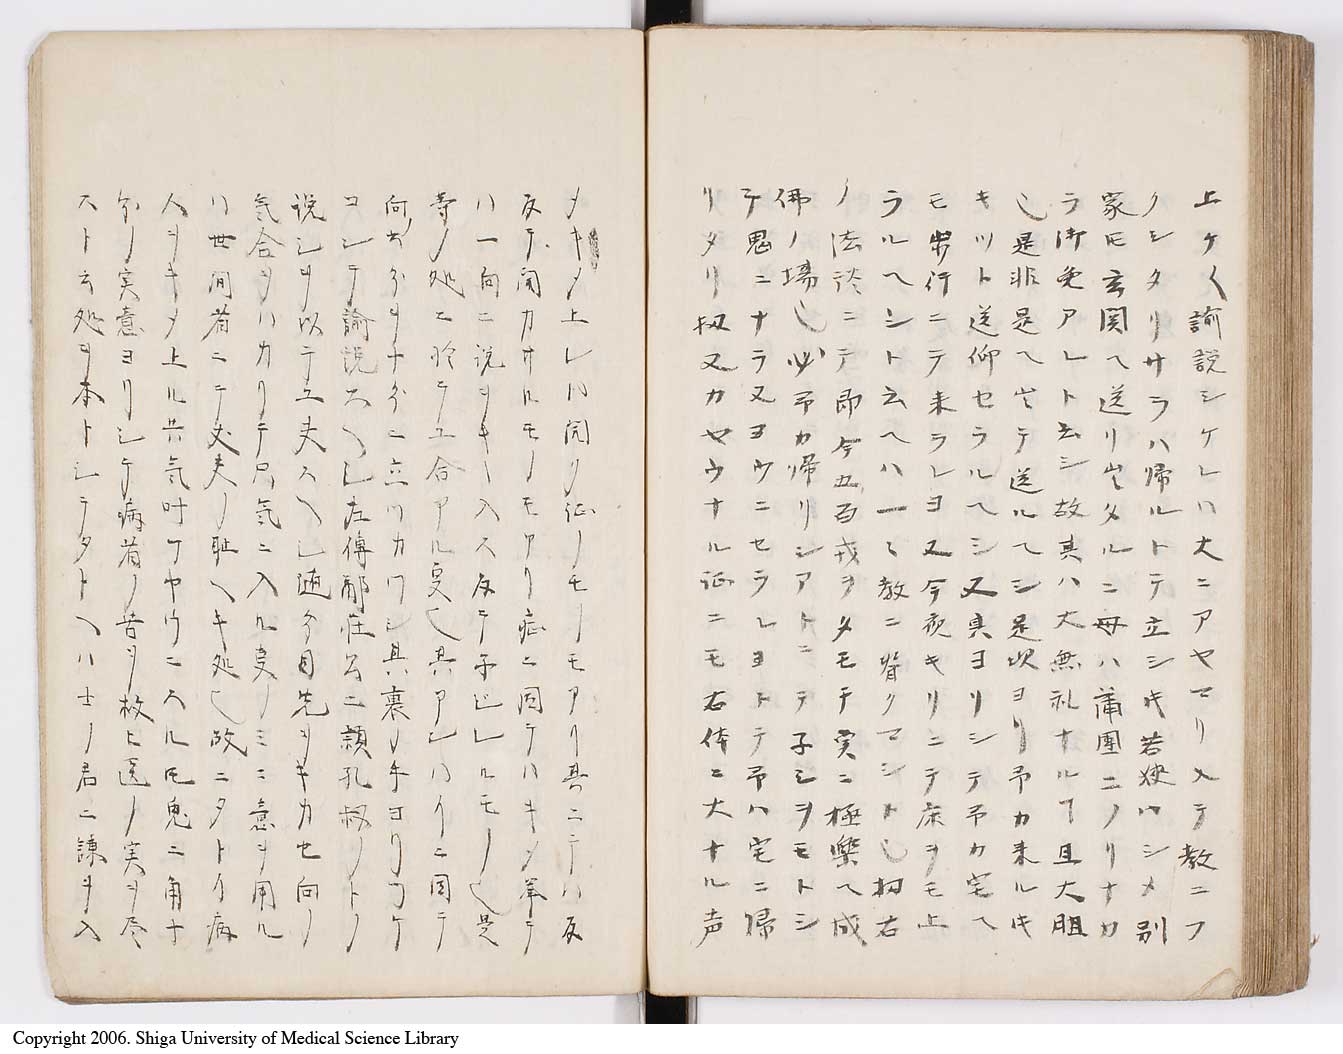 上ケ〱諭説シケレハ大ニアヤマリ入テ教ニフ
クシタリサラハ帰ルトテ立シ𪜈若狭ハシメ別
家𪜈玄関ヘ送リ出タルニ母ハ蒲團ニノリナカ
ラ御免アレト云シ故真ハ大無礼ナルヿ且大胆
也是非是ヘ出テ送ルヘシ是次ヨリ予カ来ル𪜈
キツト送仰セラルヘシ又真ヨリシテ予カ宅ヘ
モ歩行ニテ来ラレヨ又今夜キリニテ床ヲモ上
ラルヘシト云ヘハ一々教ニ背クマシト也扨右
ノ法談ニテ即今五百戒ヲタモチ実ニ極樂ヘ成
佛ノ場也必予カ帰リシアトニテ子シヲモトシ
テ鬼ニナラヌヨウニセラレヨトテ予ハ宅ニ帰
リタリ扨又カヤウナル証ニモ右体ニ大ナル声
メキメ上レハ開ク証ノモノモアリ其ニテハ反
反テ聞カサルモノモアリ症ニ因テハキメ挙テ
ハ一向ニ説ヲキヽ入ス反テ子シレルモノ也是
等ノ処ニ於テ工合アル叓也其アシハクニ因テ
向ヲ十分ニ立ツカワシ其裏ノ手ヨリコケ
コシテ諭説スヘシ左傳鄭莊公ニ頴孔叔ノトク
説シヲ以テ工夫スヘシ随分目先ヲキカセ向ノ
気合ヲハカリテ只気ニ入ル叓ノミニ意ヲ用ル
ハ世間者ニテ丈夫ノ恥ヘキ処也故ニタトイ病
人ヲキメ上ル共気叶ケヤウニスル𪜈鬼ニ角ナ
分ノ実意ヨリシテ病者ノ苦ヲ救ヒ医ノ実ヲ尽
スト云処ヲ本トシテタトヘハ士ノ君ニ諫ヲ入
Copyright 2006. Shiga University of Medical Science Library